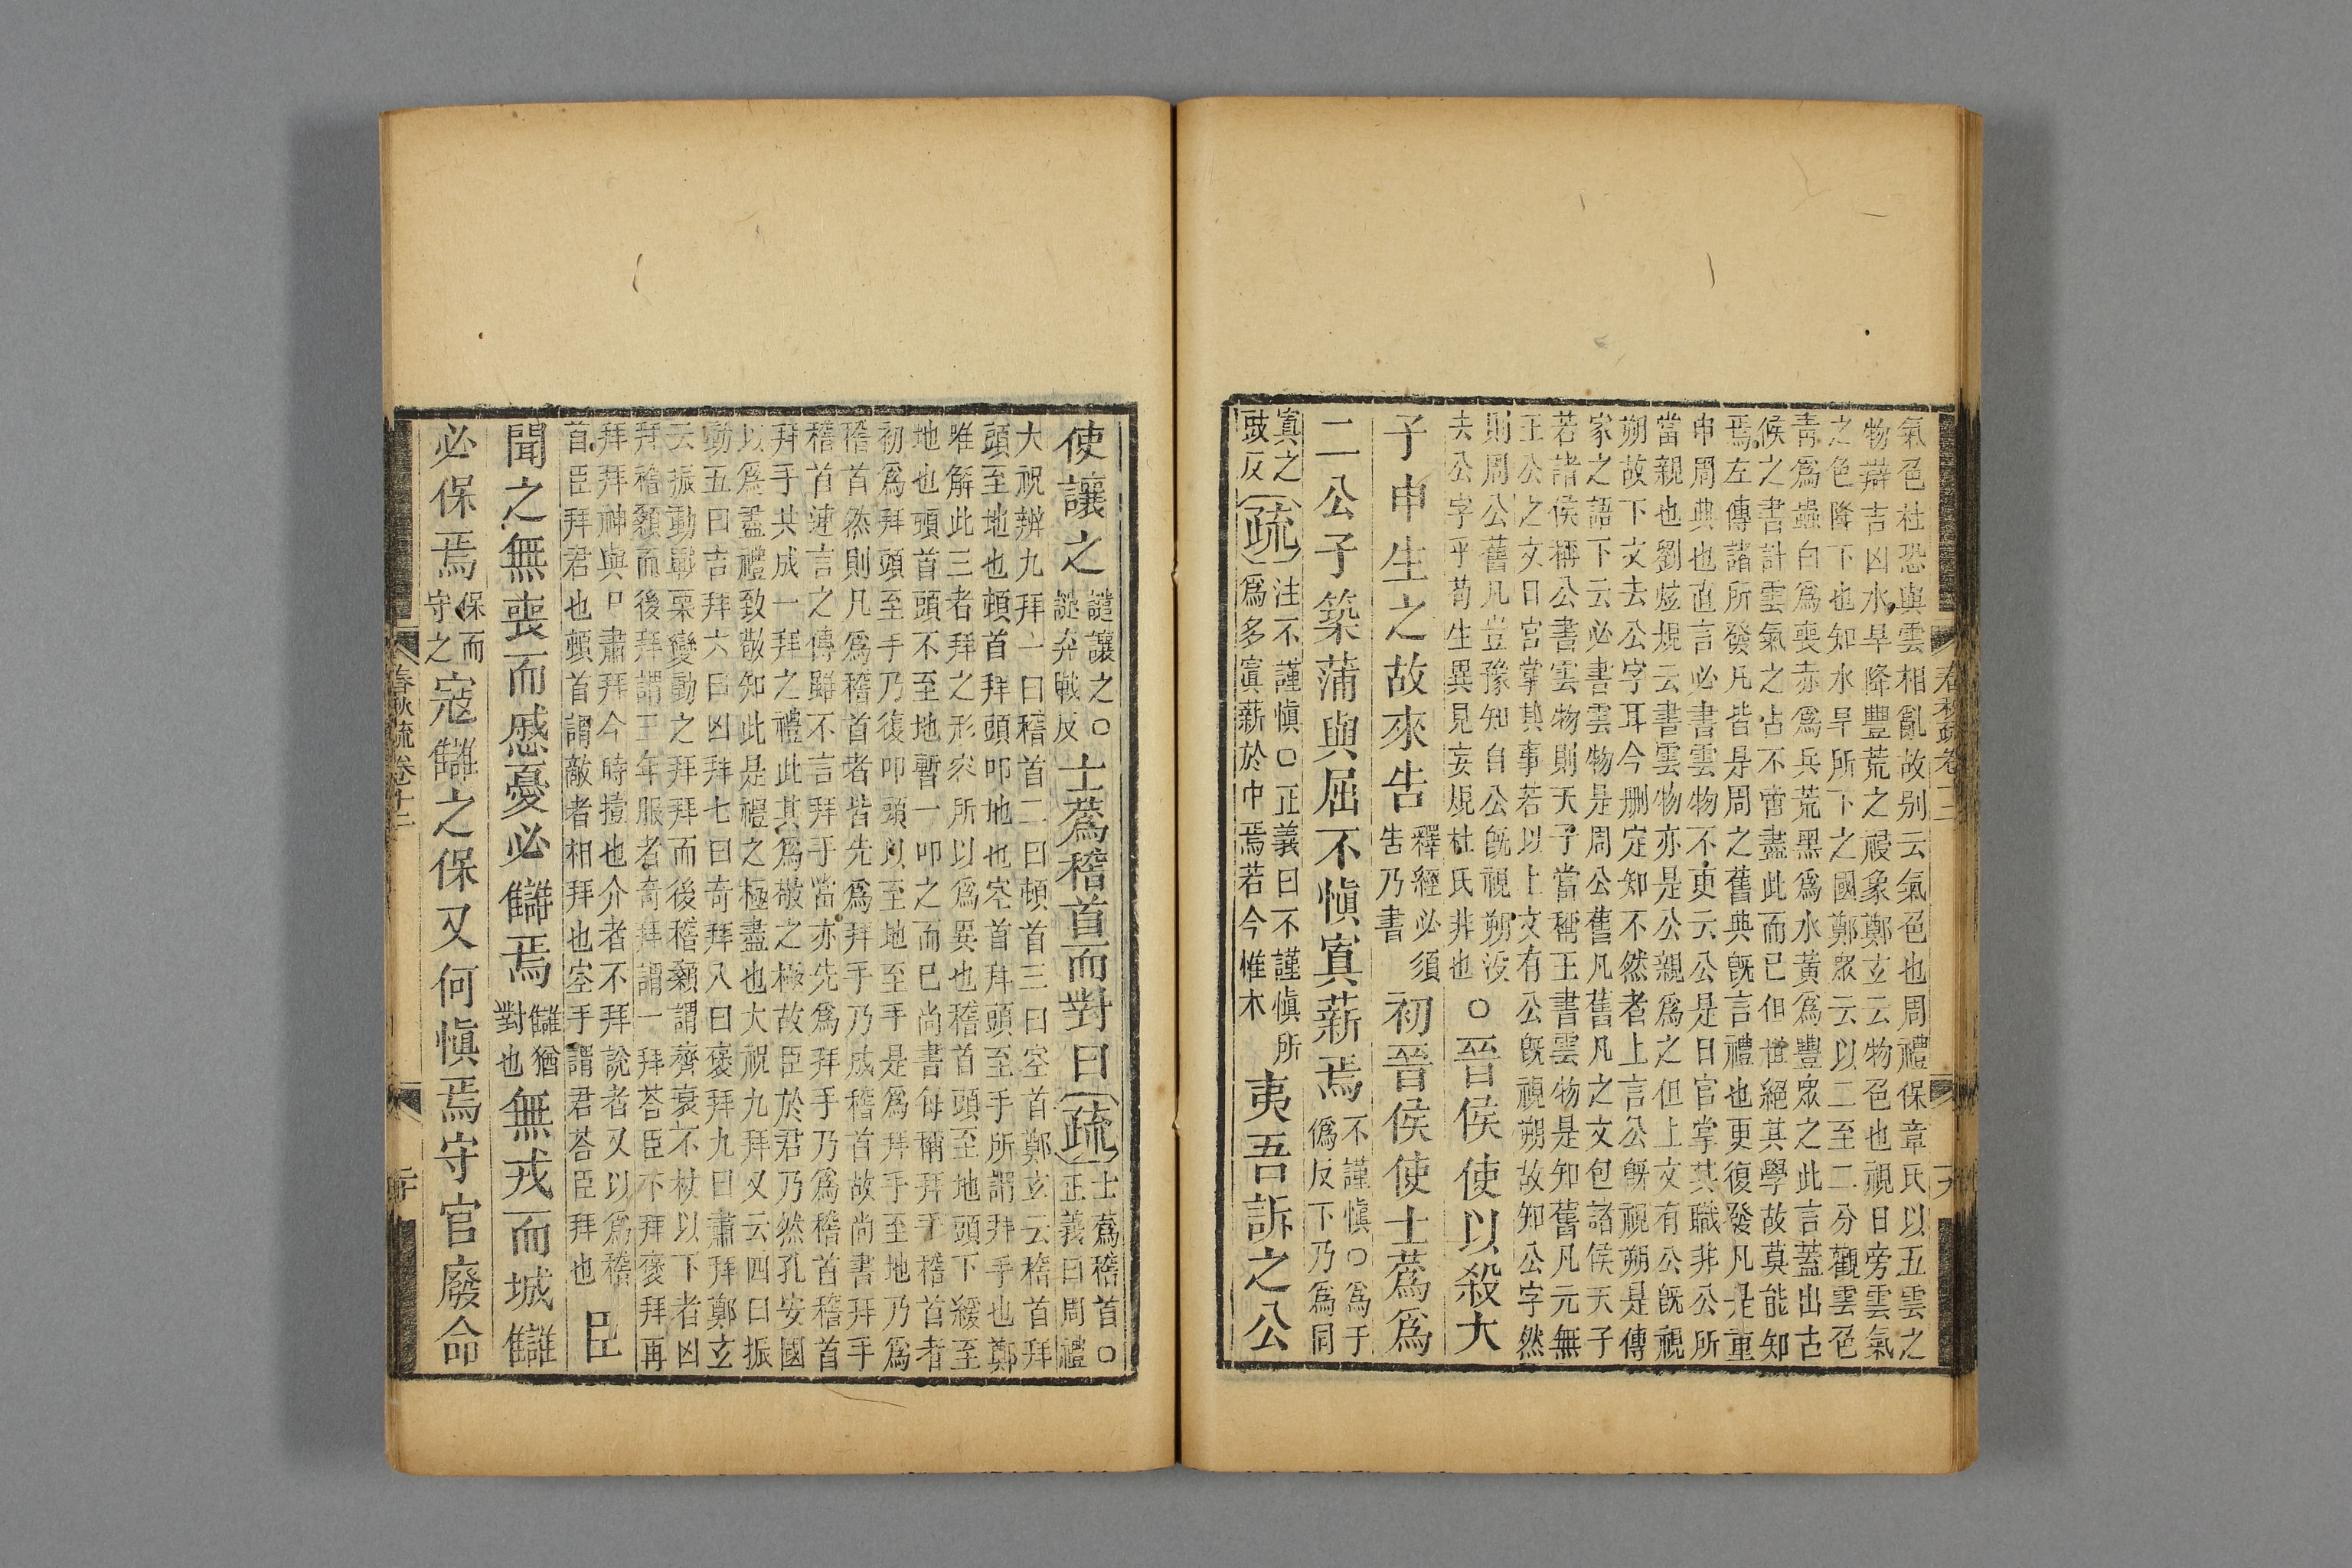 氣色杜恐與雲相亂故别云氣色也周禮保章氏以五雲之
物辯吉凶水旱降豐荒之祲象鄭玄云物色也視日旁雲氣
之色降下也知水旱所下之國鄭眾云以二至二分觀雲色
青爲蟲白爲喪赤爲兵荒黑爲水黃爲豐眾之此言蓋出古
候之書計雲氣之占不啻盡此而已但世絕其學故莫能知
焉左傳諸所發凡皆是周之舊典既言禮也更復發凡是重
申周典也直言必書雲物不更云公是日官掌其職非公所
當親也劉炫規云書雲物亦是公親爲之但上文有公既視
朔故下文去公字耳今刪定知不然者上言公既視朔是傳
家之語下云必書雲物是周公舊凡舊凡之文包諸侯天子
若諸侯稱公書雲物則天子當稱王書雲物是知舊凡元無
王公之文日官掌其事若以上文有公既視朔故知公字然
則周公舊凡豈豫知自公既視朔没
去公字乎苟生異見妄規杜氏非也
○晉侯使以殺大
子申生之故來告
釋經必須
告乃書
初晉侯使士蔿爲
二公子築蒲與屈不愼寘薪焉
不謹愼○爲于
僞反下乃爲同
寘之
豉反
疏
注不謹愼○正義曰不謹愼所
爲多寘薪於中焉若今惟木
夷吾訴之公
春秋疏卷十二
十九
使讓之
譴讓之○
譴弃戰反
士蔿稽首而對曰
疏
士蔿稽首○
正義曰周禮
大祝辨九拜一曰稽首二曰頓首三曰空首鄭玄云稽首拜
頭至地也頓首拜頭叩地也空首拜頭至手所謂拜手也鄭
唯解此三者拜之形容所以爲異也稽首頭至地頭下緩至
地也頭首頭不至地暫一叩之而已尚書每稱拜手稽首者
初爲拜頭至手乃復叩頭以至地至手是爲拜手至地乃爲
稽首然則凡爲稽首者皆先爲拜手乃成稽首故尚書拜手
稽首連言之傳雖不言拜手當亦先爲拜手乃爲稽首稽首
拜手共成一拜之禮此其爲敬之極故臣於君乃然孔安國
以爲盡禮致敬知此是禮之極盡也大祝九拜又云四曰振
動五曰吉拜六曰凶拜七曰奇拜八曰褒拜九曰肅拜鄭玄
云振動戰栗變動之拜拜而後稽顙謂齊衰不杖以下者凶
拜稽顙而後拜謂三年服者奇拜謂一拜荅臣不拜褒拜再
拜拜神與尸肅拜今時撎也介者不拜說者又以爲稽
首臣拜君也頓首謂敵者相拜也空手謂君荅臣拜也
臣
聞之無喪而慼憂必讎焉
讎猶
對也
無戎而城讎
必保焉
保而
守之
寇讎之保又何愼焉守官廢命
春秋疏卷十二
二十